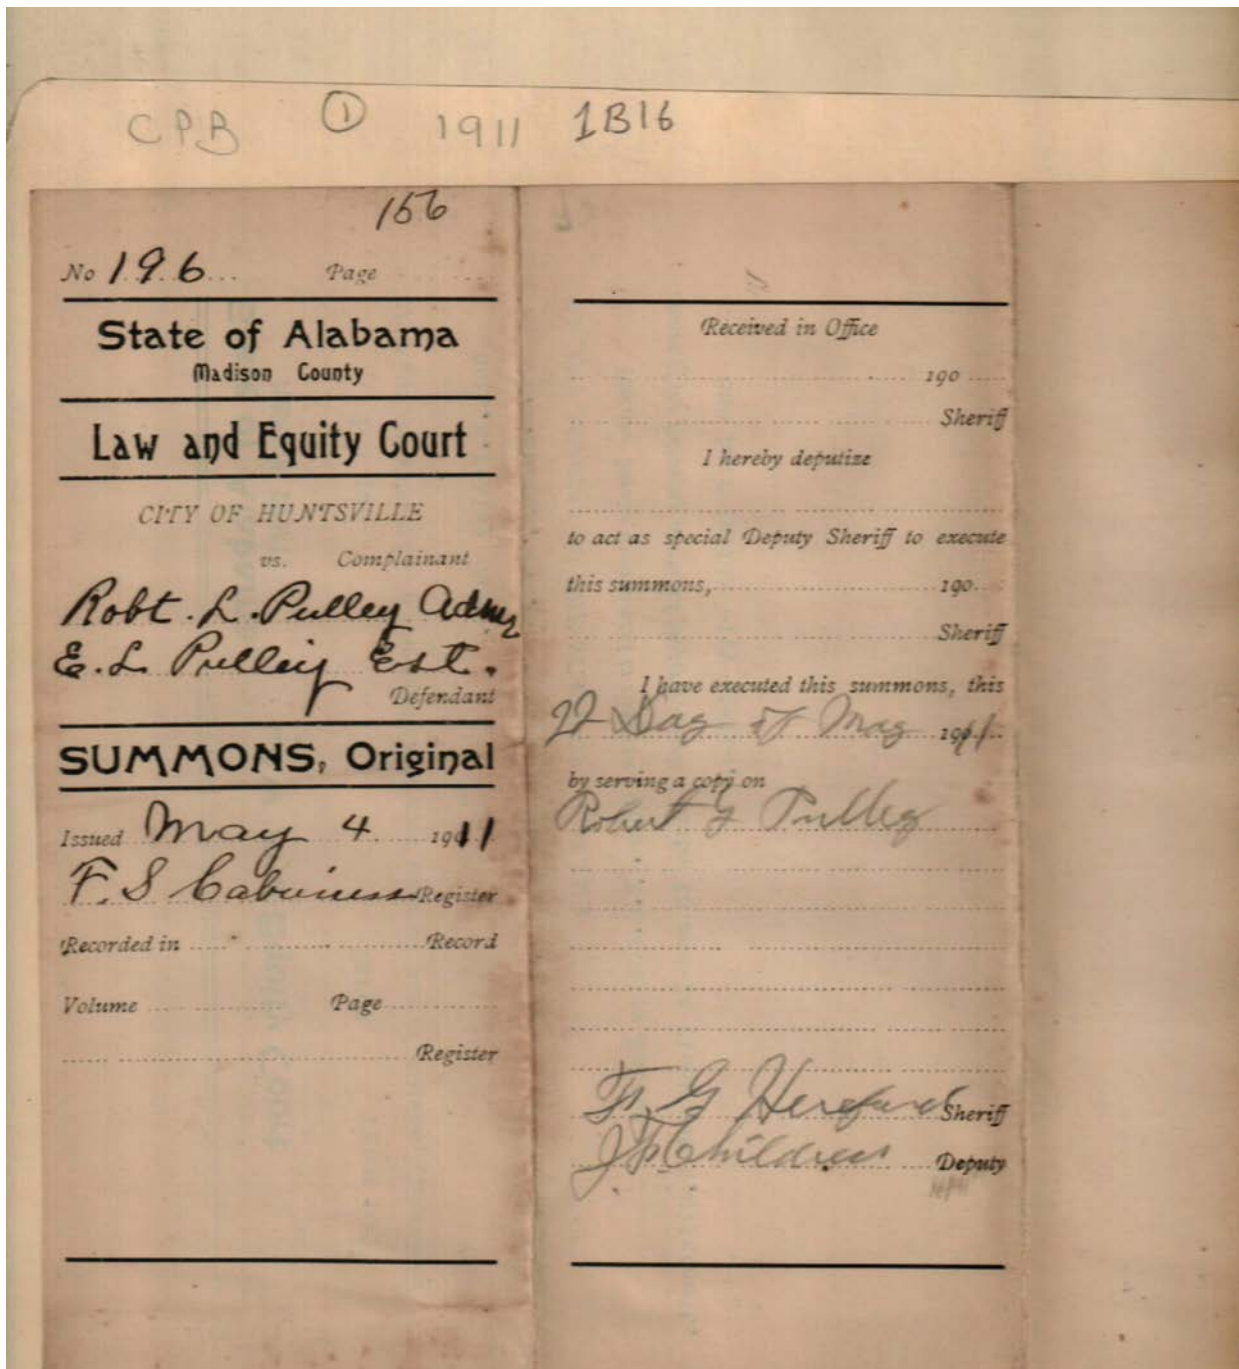 CPB ① 1911 1B16
156
No 196 Page
State of Alabama
Madison County
Law and Equity Court
CITY OF HUNTSVILLE
vs. Complainant
Robt. L. Pulley Admr
E. L. Pulley Est.
Defendant
SUMMONS, Original
Issued May 4 1911
F. S Cabaniss Register
Recorded in Record
Volume Page
Register
Received in Office
190
Sheriff
I hereby deputize
to act as special Deputy Sheriff to execute
this summons, 190
Sheriff
I have executed this summons, this
Day of May 1911
by serving a copy on
Robert L Pulley
Sheriff
J Childress Deputy